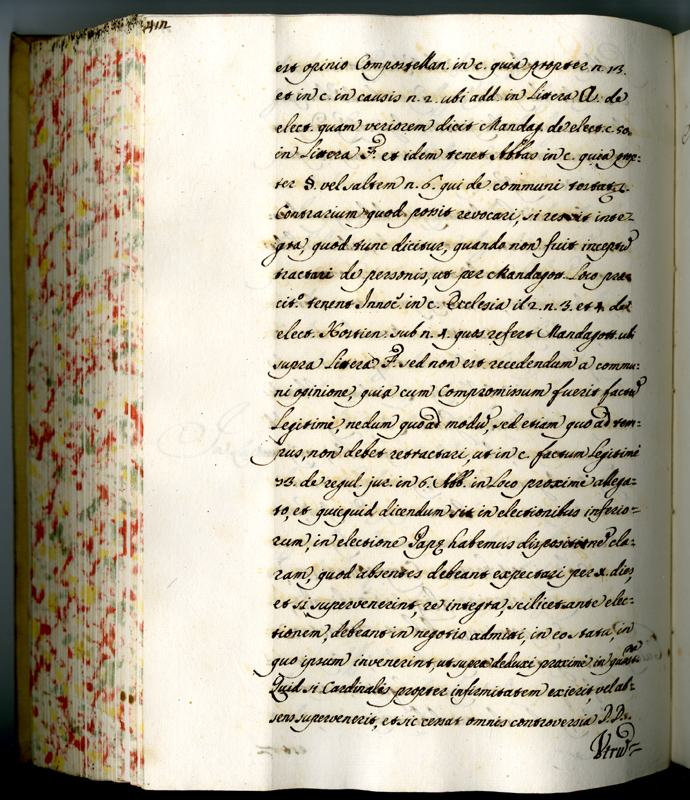 412
est opinio Compostellan. in c. quia propter n. 13.
et in c. in causis n. 2. ubi add. in Littera A. de
elect. quam veriorem dicit Mandag. de elect. c. 50.
in Littera F. et idem tenet Abbas in c. quia prop:
ter §. vel saltem n. 6. qui de communi testat.
Contrarium quod possit revocari, si res sit inte:
gra, quod tunc dicitur, quando non fuit inceptũ
tractari de personis, ut per Mandagott. Loco præ
cit.º tenent Innoc. in c. Ecclesia il 2. n. 3. et 4. de
elect. Hostien. sub n. 4. quos refert Mandagott. ubi
supra Littera F. sed non est recedendum a commu:
ni opinione, quia cum Compromissum fuerit factũ
Legitimè, nedum quoad modũ, sed etiam quo ad tem:
pus, non debet retractari, ut in c. factum Legitimè
73. de regul. jur. in 6. Abb. in Loco proximè allega:
to, et quicquid dicendum sit in electionibus inferio:
rum, in electione Papę habemus dispositionẽ cla:
ram, quod absentes debeant expectari per x. dies,
et si supervenerint, re integra, scilicet ante elec:
tionem, debeant in negotio admitti, in eo statu, in
quo ipsum invenerint, ut supra deduxi proximè in
Quid si Cardinalis propter infirmitatem exierit, vel ab:
sens supervenerit, et sic cessat omnis controversia
Utrũ